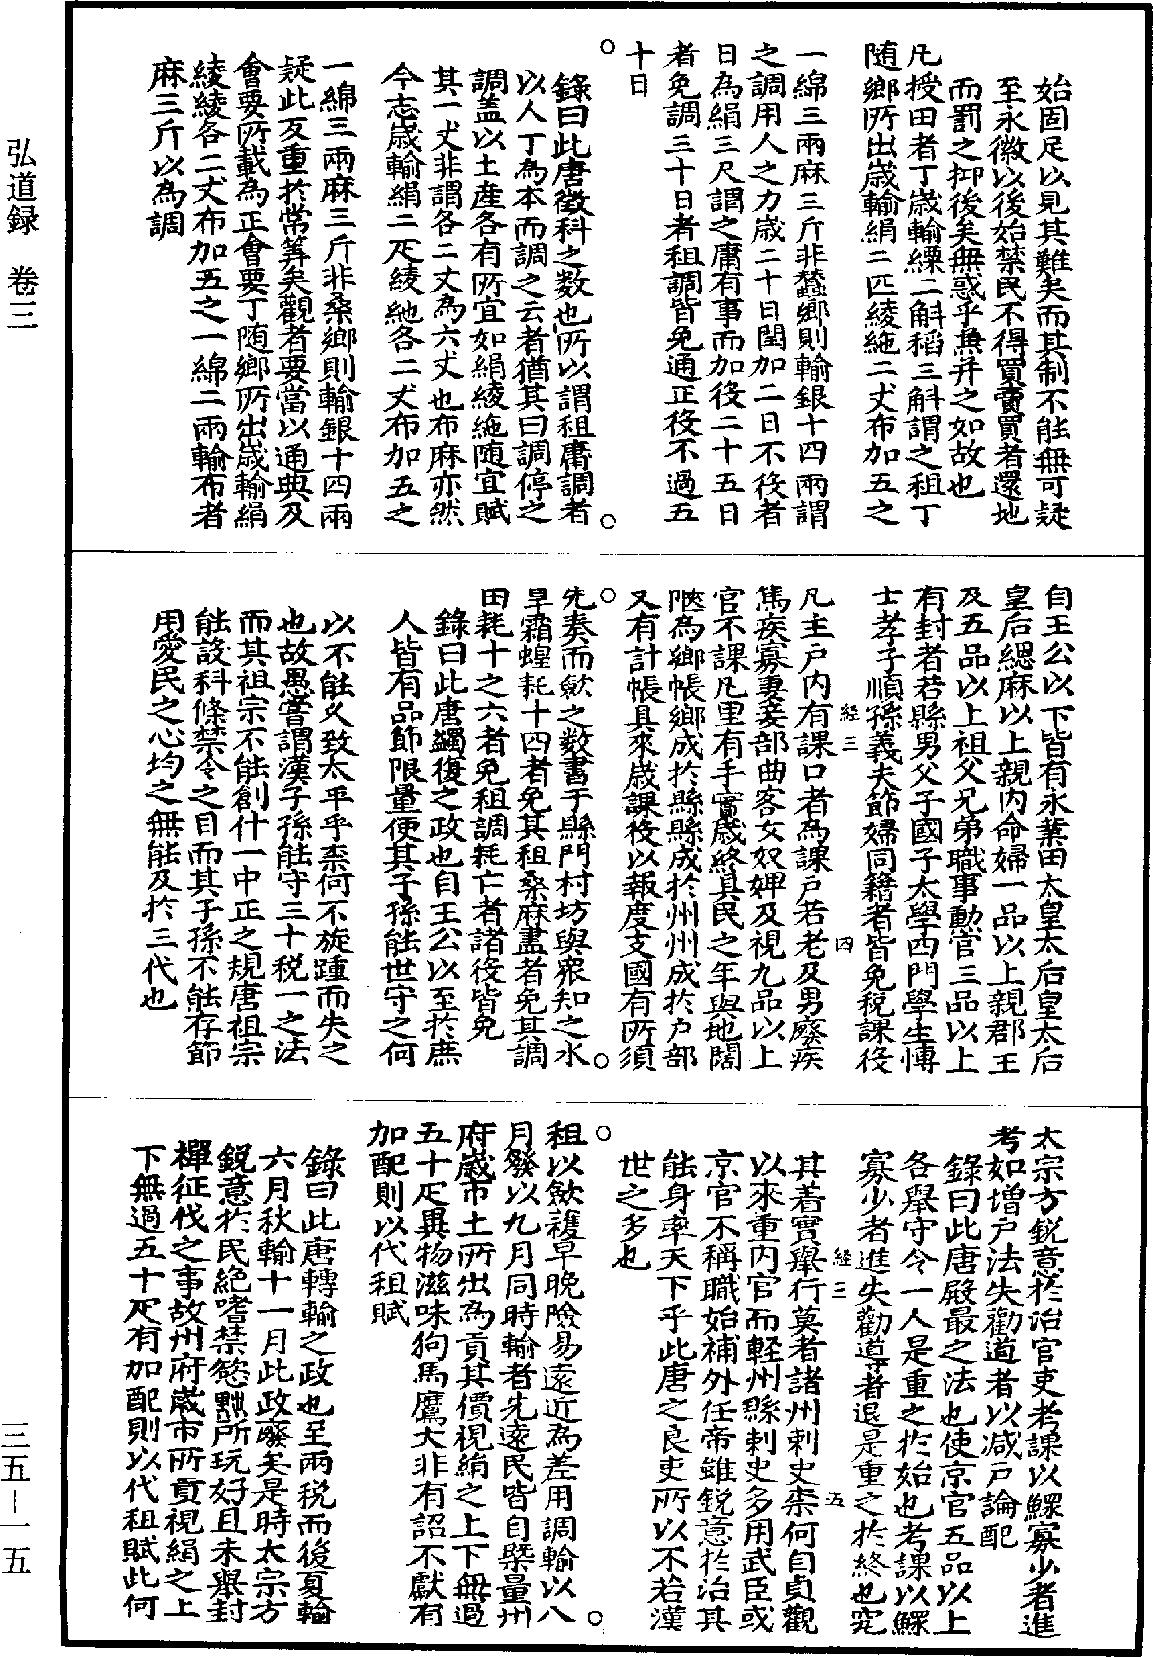 始固足以見其難矣而其制不能無可疑
至永徽以後始禁民不得買賣買者還地
而罰之抑後矣無惑乎兼并之如故也
凡授田者丁歲輸粟二斛稻三斛謂之租丁
随鄉所出歲輸絹二匹綾絁二丈布加五之
一綿三兩麻三斤非蠶鄉則輸銀十四兩謂
之調用人之力歲二十日閏加二日不役者
日為絹三尺謂之庸有事而加役二十五日
者免調三十日者租調皆免通正役不過五
十日
○
錄曰此唐徵科之数也所以謂租庸調者
以人丁為本而調之云者猶其曰調停之
調盖以土產各有所宜如絹綾絁随宜賦
其一丈非謂各二丈為六丈也布麻亦然
今志歲輸絹二疋綾絁各二丈布加五之
○
一綿三兩麻三斤非桑鄉則輸銀十四兩
疑此反重於常筭矣觀者要當以通典及
會要所載為正會要丁随鄉所出歲輸絹
綾綾各二丈布加五之一綿二兩輸布者
麻三斤以為調
自王公以下皆有永業田太皇太后皇太后
皇后緦麻以上親内命婦一品以上親郡王
及五品以上祖父兄弟職事勳官三品以上
有封者若縣男父子國子太學四門學生愽
士孝子順孫義夫節婦同籍者皆免稅課役
経三
四
凡主戶内有課口者為課戶若老及男癈疾
篤疾寡妻妾部曲客女奴婢及視九品以上
官不課凡里有手實歲終具民之年與地闊
陿為鄉帳鄉成於縣縣成於州州成於户部
又有計帳具來歲課役以報度支國有所須
○
先奏而斂之数書于縣門村坊與眾知之水
旱霜蝗耗十四者免其租桑麻盡者免其調
田耗十之六者免租調耗亡者諸役皆免
○
錄曰此唐蠲復之政也自王公以至於庶
人皆有品節限量便其子孫能世守之何
以不能乆致太平乎柰何不旋踵而失之
也故愚嘗謂漢子孫能守三十税一之法
而其祖宗不能創什一中正之規唐祖宗
能設科條禁令之目而其子孫不能存節
用愛民之心均之無能及於三代也
太宗方銳意於治官吏考課以鰥寡少者進
考如增户法失勸道者以減戶論配
錄曰此唐殿最之法也使京官五品以上
各舉守令一人是重之於始也考課以鰥
寡少者進失勸導者退是重之於終也究
経三
五
其着實舉行莫者諸州刺史柰何自貞觀
以來重内官而軽州縣刺史多用武臣或
京官不稱職始補外任帝雖銳意於治其
能身率天下乎此唐之良吏所以不若漢
世之多也
○
租以斂穫早晚險易遠近為差用調輸以八
月發以九月同時輸者先遠民皆自槩量州
府歲市土所出為貢其價視絹之上下無過
五十疋異物滋味狗馬鷹犬非有詔不獻有
加配則以代租賦
○
錄曰此唐轉輸之政也至兩稅而後夏輸
六月秋輸十一月此政廢矣是時太宗方
銳意於民絕嗜禁慾黜所玩好且未舉封
禪征伐之事故州府歲市所貢視絹之上
下無過五十疋有加配則以代租賦此何
弘道録　卷三
三五－一五